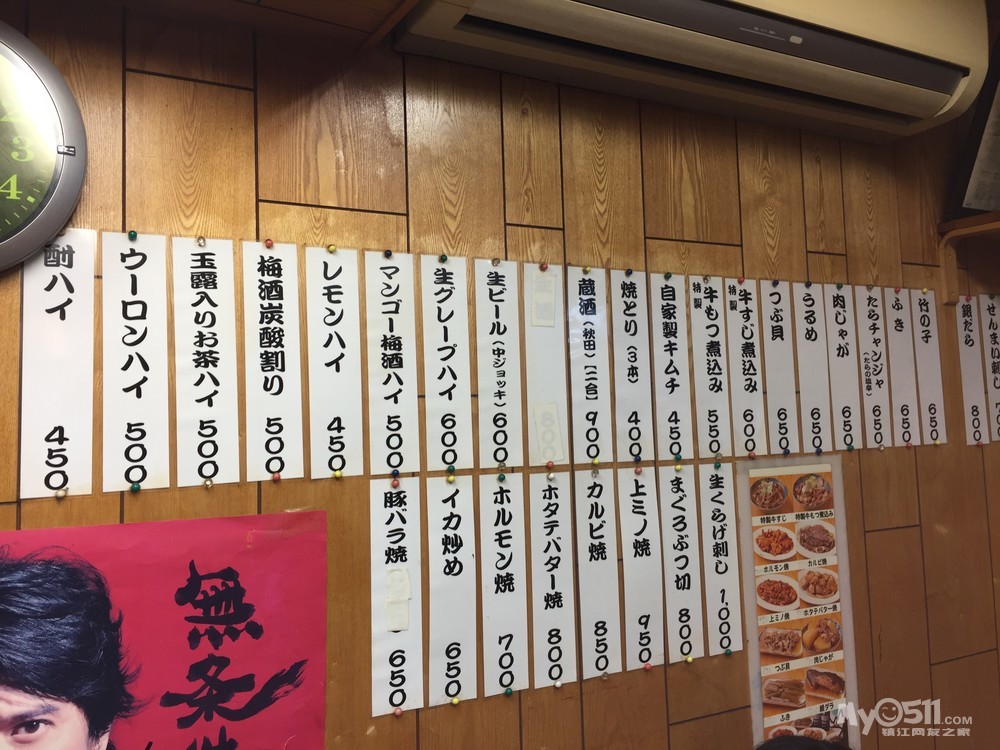 酎ハイ 450
ウーロンハイ 500
玉露入りお茶ハイ 500
梅酒炭酸割り 500
レモンハイ 450
マンゴー梅酒ハイ 500
生グレープハイ 600
生ビール(中ジョッキ) 600
800
蔵酒(秋田)[二合] 900
焼とり(3本) 400
自家製キムチ 450
特製 牛もつ煮込み 550
特製 牛すじ煮込み 600
つぶ貝 650
うるめ 650
肉じゃが 650
たらチャンジャ(たらの塩辛) 650
ふき 650
竹の子 650
銀だら 800
せんまい刺し
豚バラ焼 650
イカ炒め 650
ホルモン焼 700
ホタテバター焼 800
カルビ焼 850
上ミノ焼 950
まぐろぶつ切 800
生くらげ刺し 1,000
特製牛すじ 特製牛もつ煮込み
ホルモン焼 カルビ焼
上ミノ焼 ホタテバター焼
つぶ貝 肉じゃが
ふき 銀ダラ
3
4
無条
My0511.COM
镇江网友之家